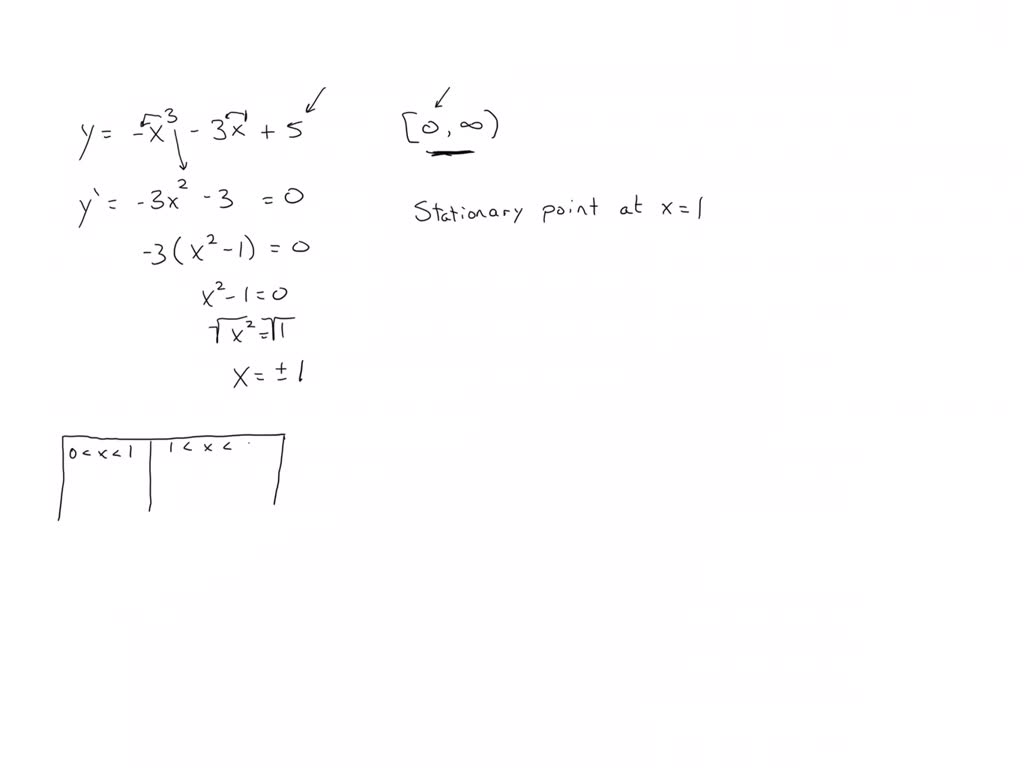 y = -x³ - 3x + 5
[0, ∞)
y' = -3x² - 3 = 0
Stationary point at x = 1
-3(x² - 1) = 0
x² - 1 = 0
√x² = √1
x = ± 1
0 < x < 1
1 < x <